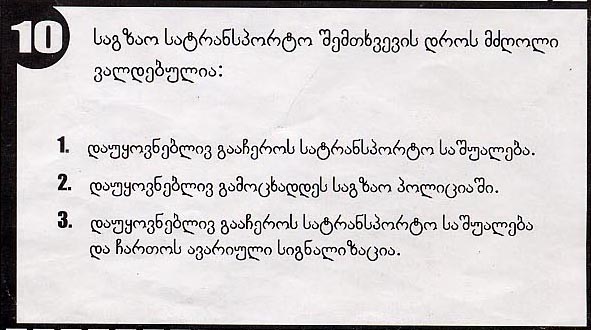 10 საგზაო სატრანსპორტო შემთხვევის დროს მძღოლი
ვალდებულია:
1. დაუყოვნებლივ გააჩეროს სატრანსპორტო საშუალება.
2. დაუყოვნებლივ გამოცხადდეს საგზაო პოლიციაში.
3. დაუყოვნებლივ გააჩეროს სატრანსპორტო საშუალება
და ჩართოს ავარიული სიგნალიზაცია.